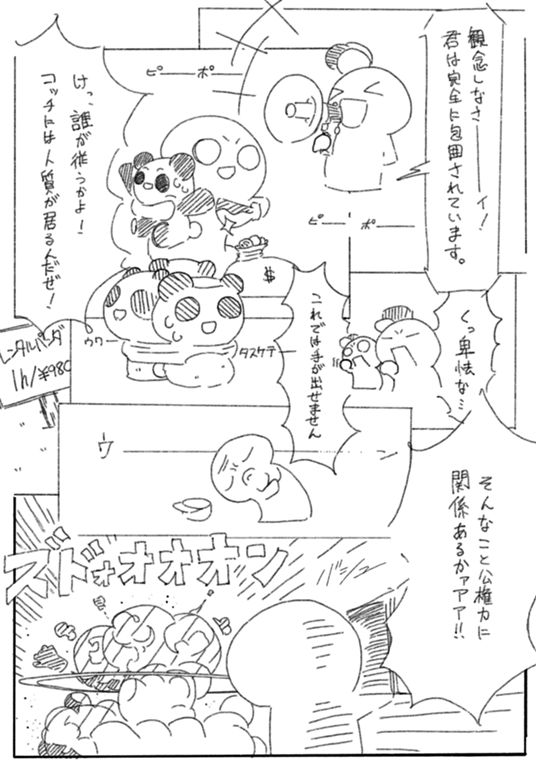 観念しなさ――ィ!
君は完全に包囲されています。
ピ――ポ――
けっ、誰が従うかよ!
コッチには人質が居るんだぜ!
ピ――ポ――
$
ウワー
タスケテー
レンタルパンダ
1h/¥980
くっ卑怯な…
これでは手が出せません
ウ――
そんなこと公権力に
関係あるかァアア!!
バシュ――
ズドォオオオン